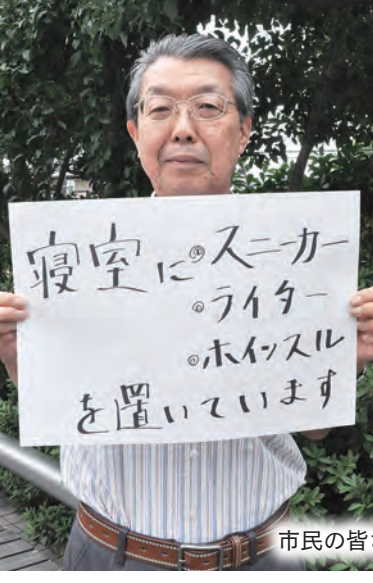 寝室に◎スニーカー
◎ライター
◎ホインスル
を置いています
市民の皆